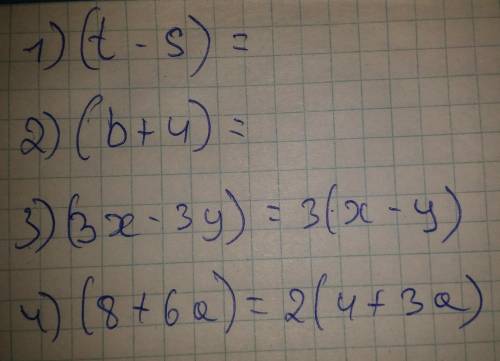 1) (t - s) =
2) (b + 4) =
3) (3x - 3y) = 3(x - y)
4) (8 + 6a) = 2(4 + 3a)